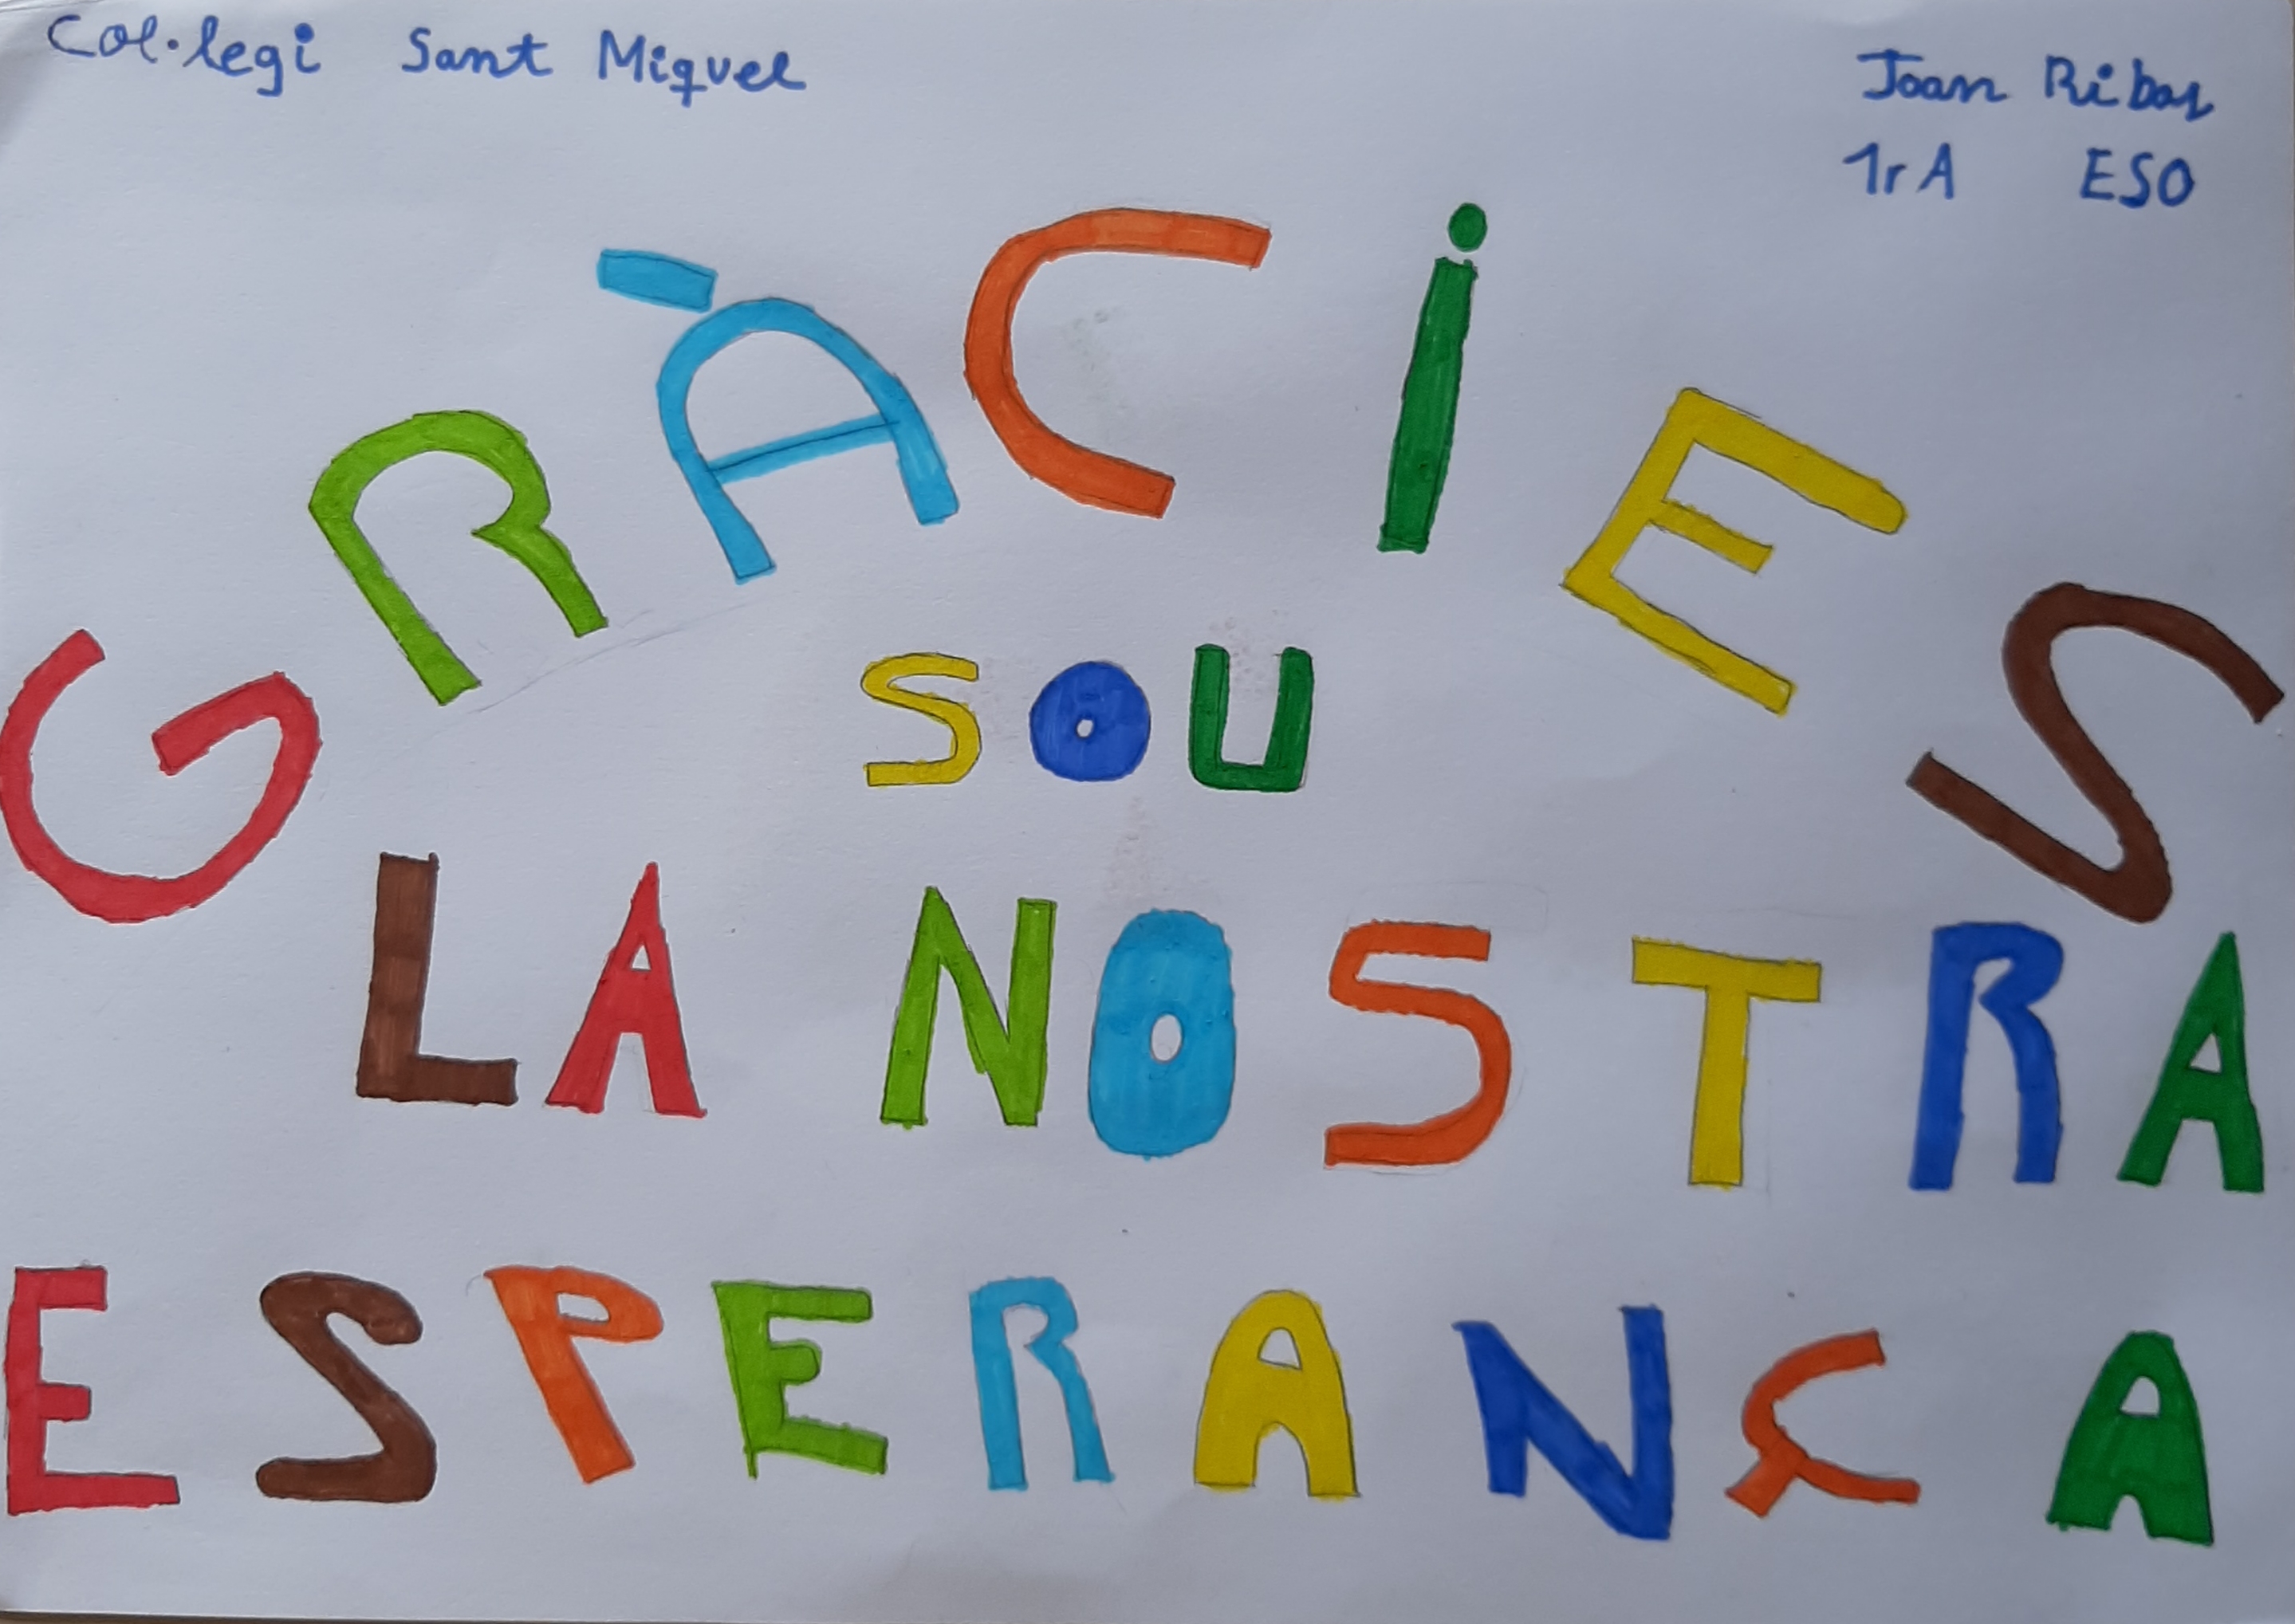 Col·legi Sant Miquel
Joan Ribas
1r A ESO
GRÀCiES
SOU
LA NOSTRA
ESPERANÇA